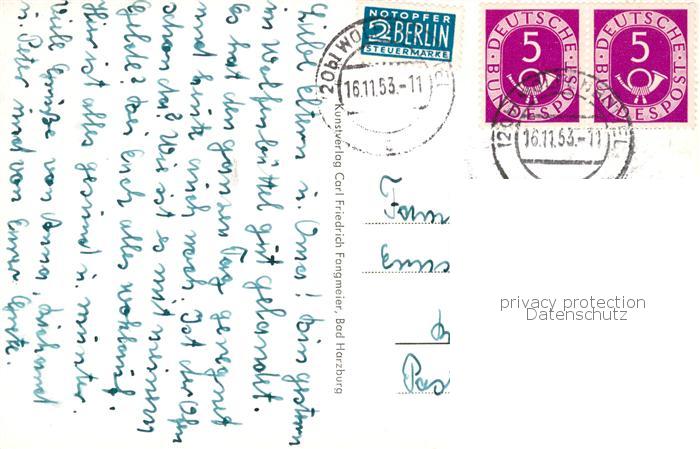 Liebe Eltern u. Oma! Bin gestern
in Wolfenbüttel gut gelandet.
Es hat den ganzen Tag geregnet
und heute auch noch. Ist der Ofen
schon da? Wie ist es mit meinem
Gelde? Bei Euch alles wohlauf?
Hier ist alles gesund u. munter.
Viele Grüße von Anna, Richard
u. Peter und von Eurer Grete.
Kunstverlag Carl Friedrich Fangmeier, Bad Harzburg
NOTOPFER
2 BERLIN
STEUERMARKE
DEUTSCHE BUNDESPOST
5
DEUTSCHE BUNDESPOST
5
16.11.53.-11
16.11.53.-11
Fam
privacy protection
Datenschutz